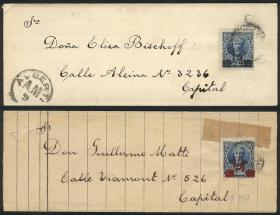 Sra
Doña Elisa Bischoff
Calle Alsina Nº 3236
Capital
Sr
Don Guillermo Matti
Calle Viamont Nº 526
Capital